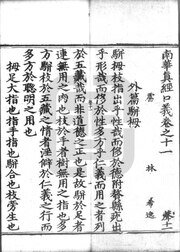 南華真經口義卷之十一
鬳齋 林 希逸
外篇駢拇
駢拇枝指出乎性哉而侈於德附贅縣疣出
乎形哉而侈於性多方乎仁義而用之者列
於五藏哉而非道德之正也是故駢於足者
連無用之肉也枝於手者樹無用之指也多
方駢枝於五藏之情者淫僻於仁義之行而
多方於聰明之用也
拇足大指也指手指也駢合也枝旁生也